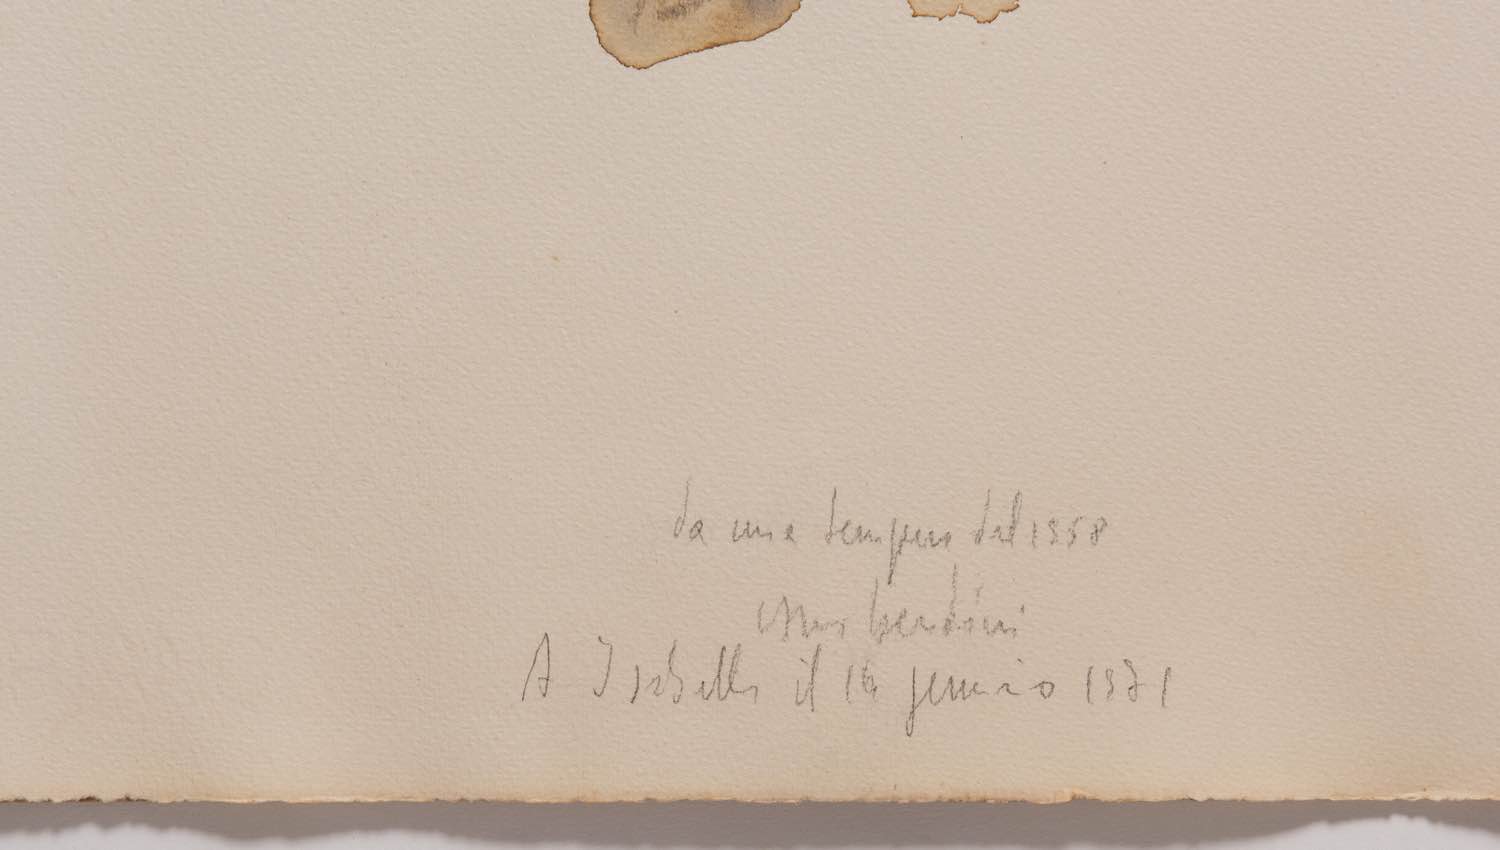 da una tempera del 1958
Vasco bendini
A Isabella il 14 gennaio 1971